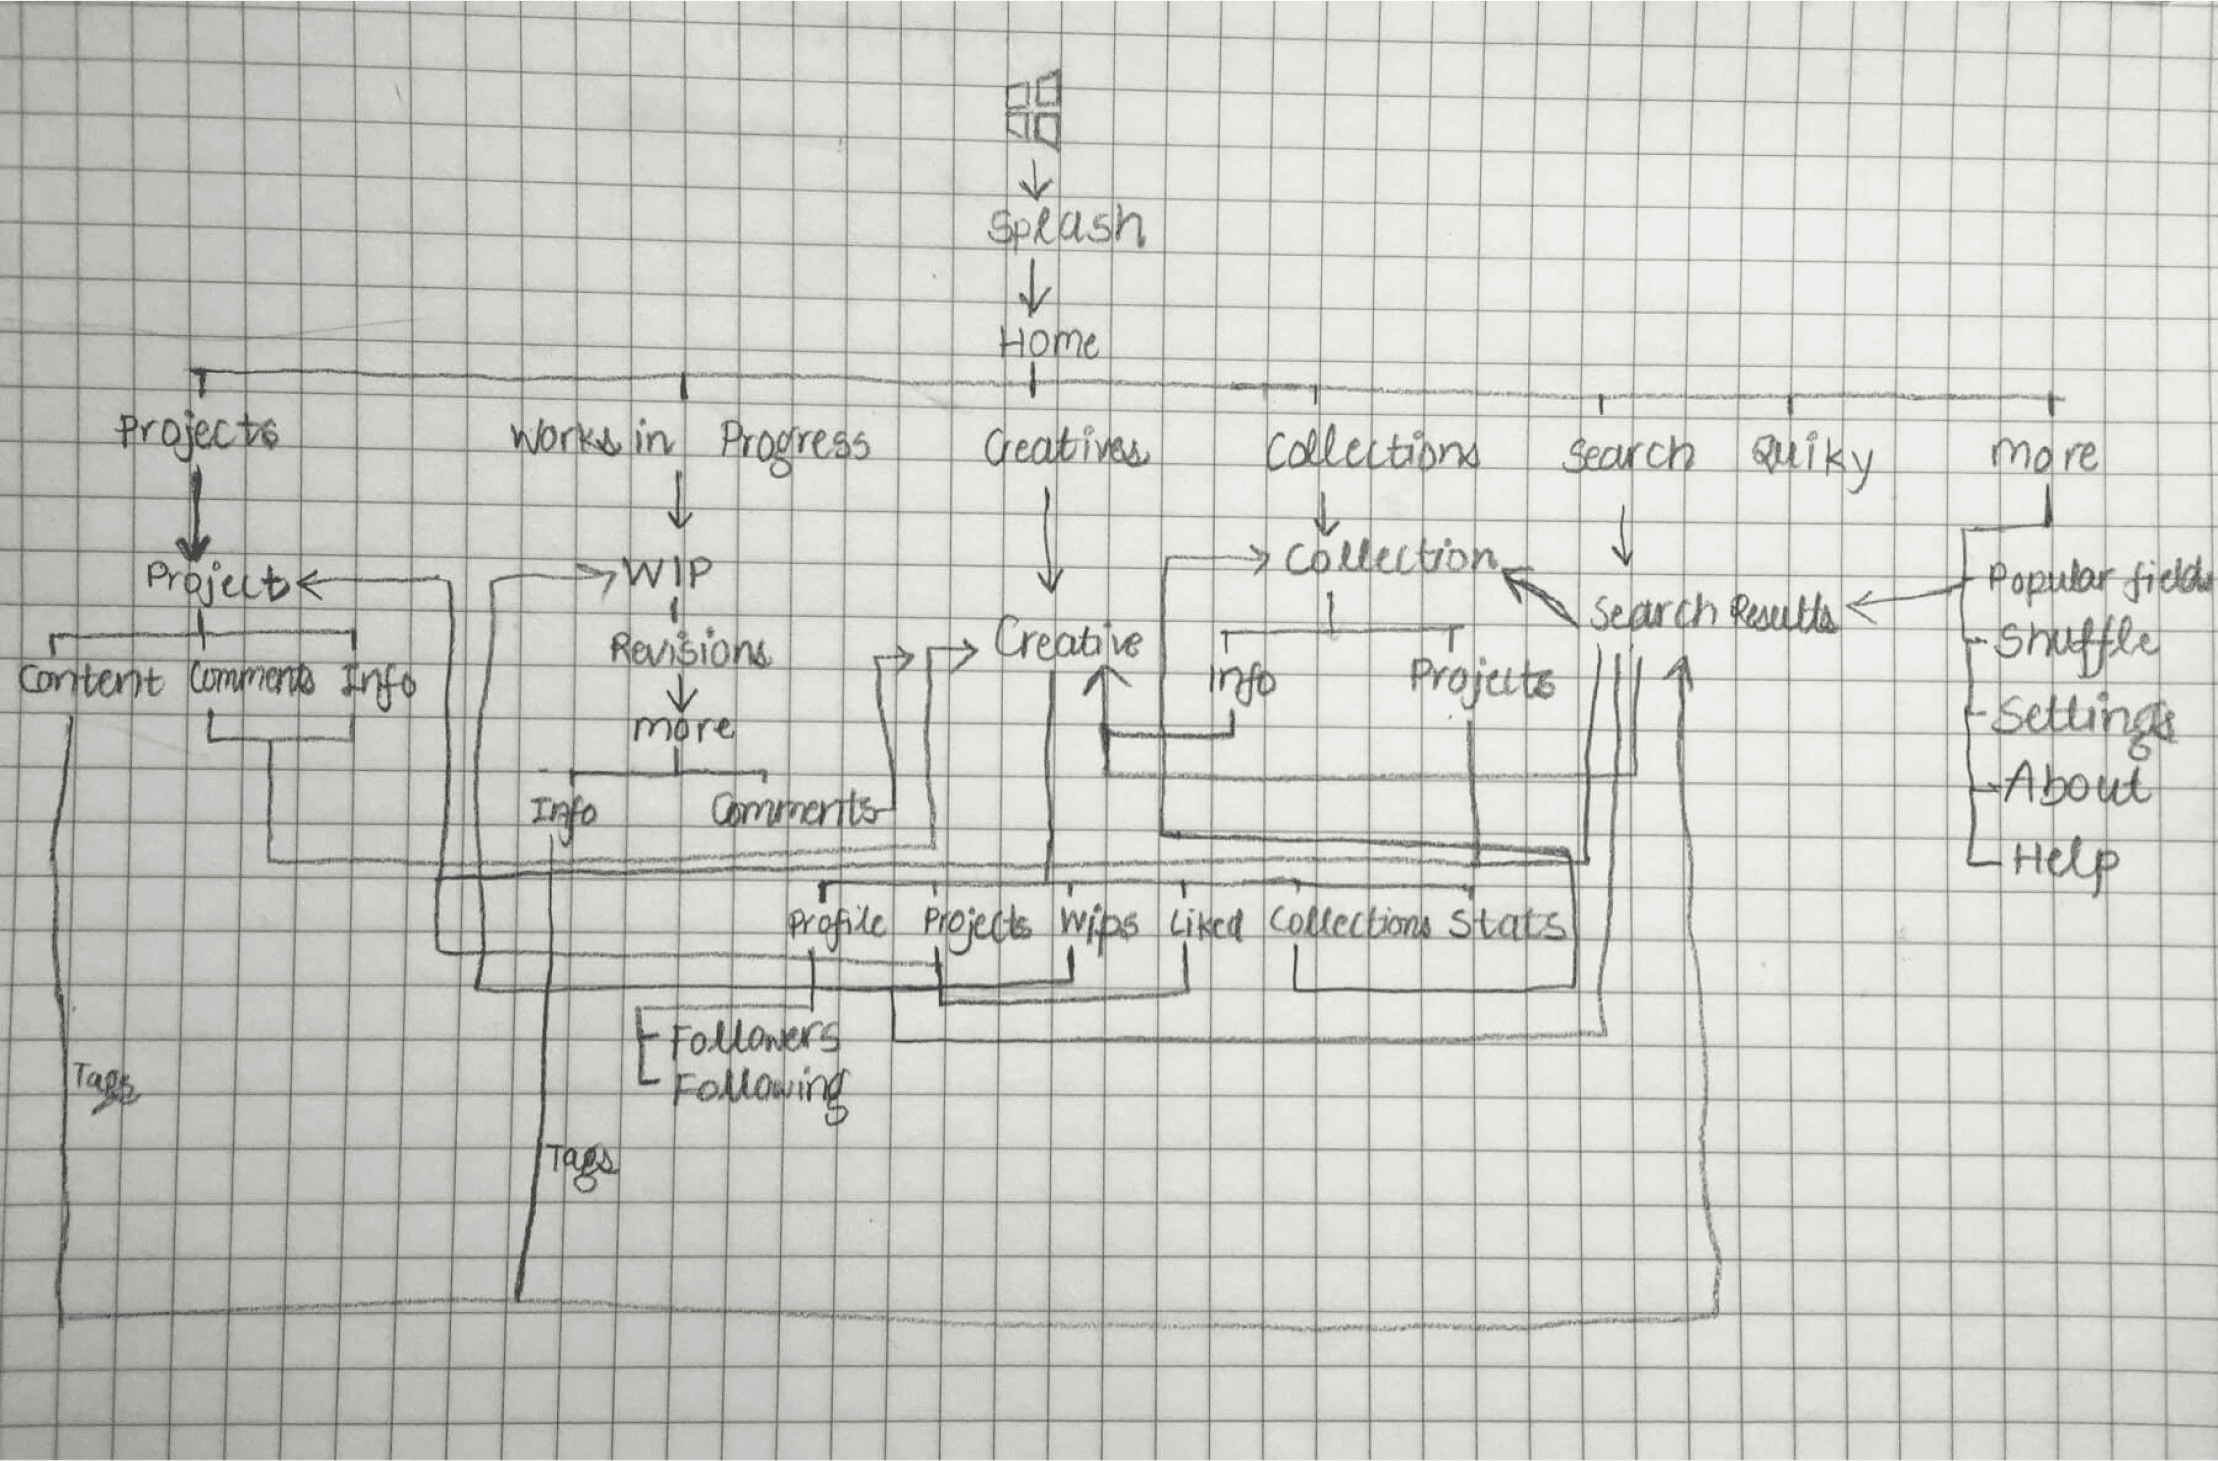 Splash
Home
Projects
Works in Progress
Creatives
Collections
Search
Quiky
more
Project
WIP
Collection
Popular fields
Search Results
Shuffle
Creative
Revisions
Content
Comments
Info
Info
Projects
more
Settings
Info
Comments
About
Help
Profile
Projects
Wips
Liked
Collections
Stats
Followers
Following
Tags
Tags